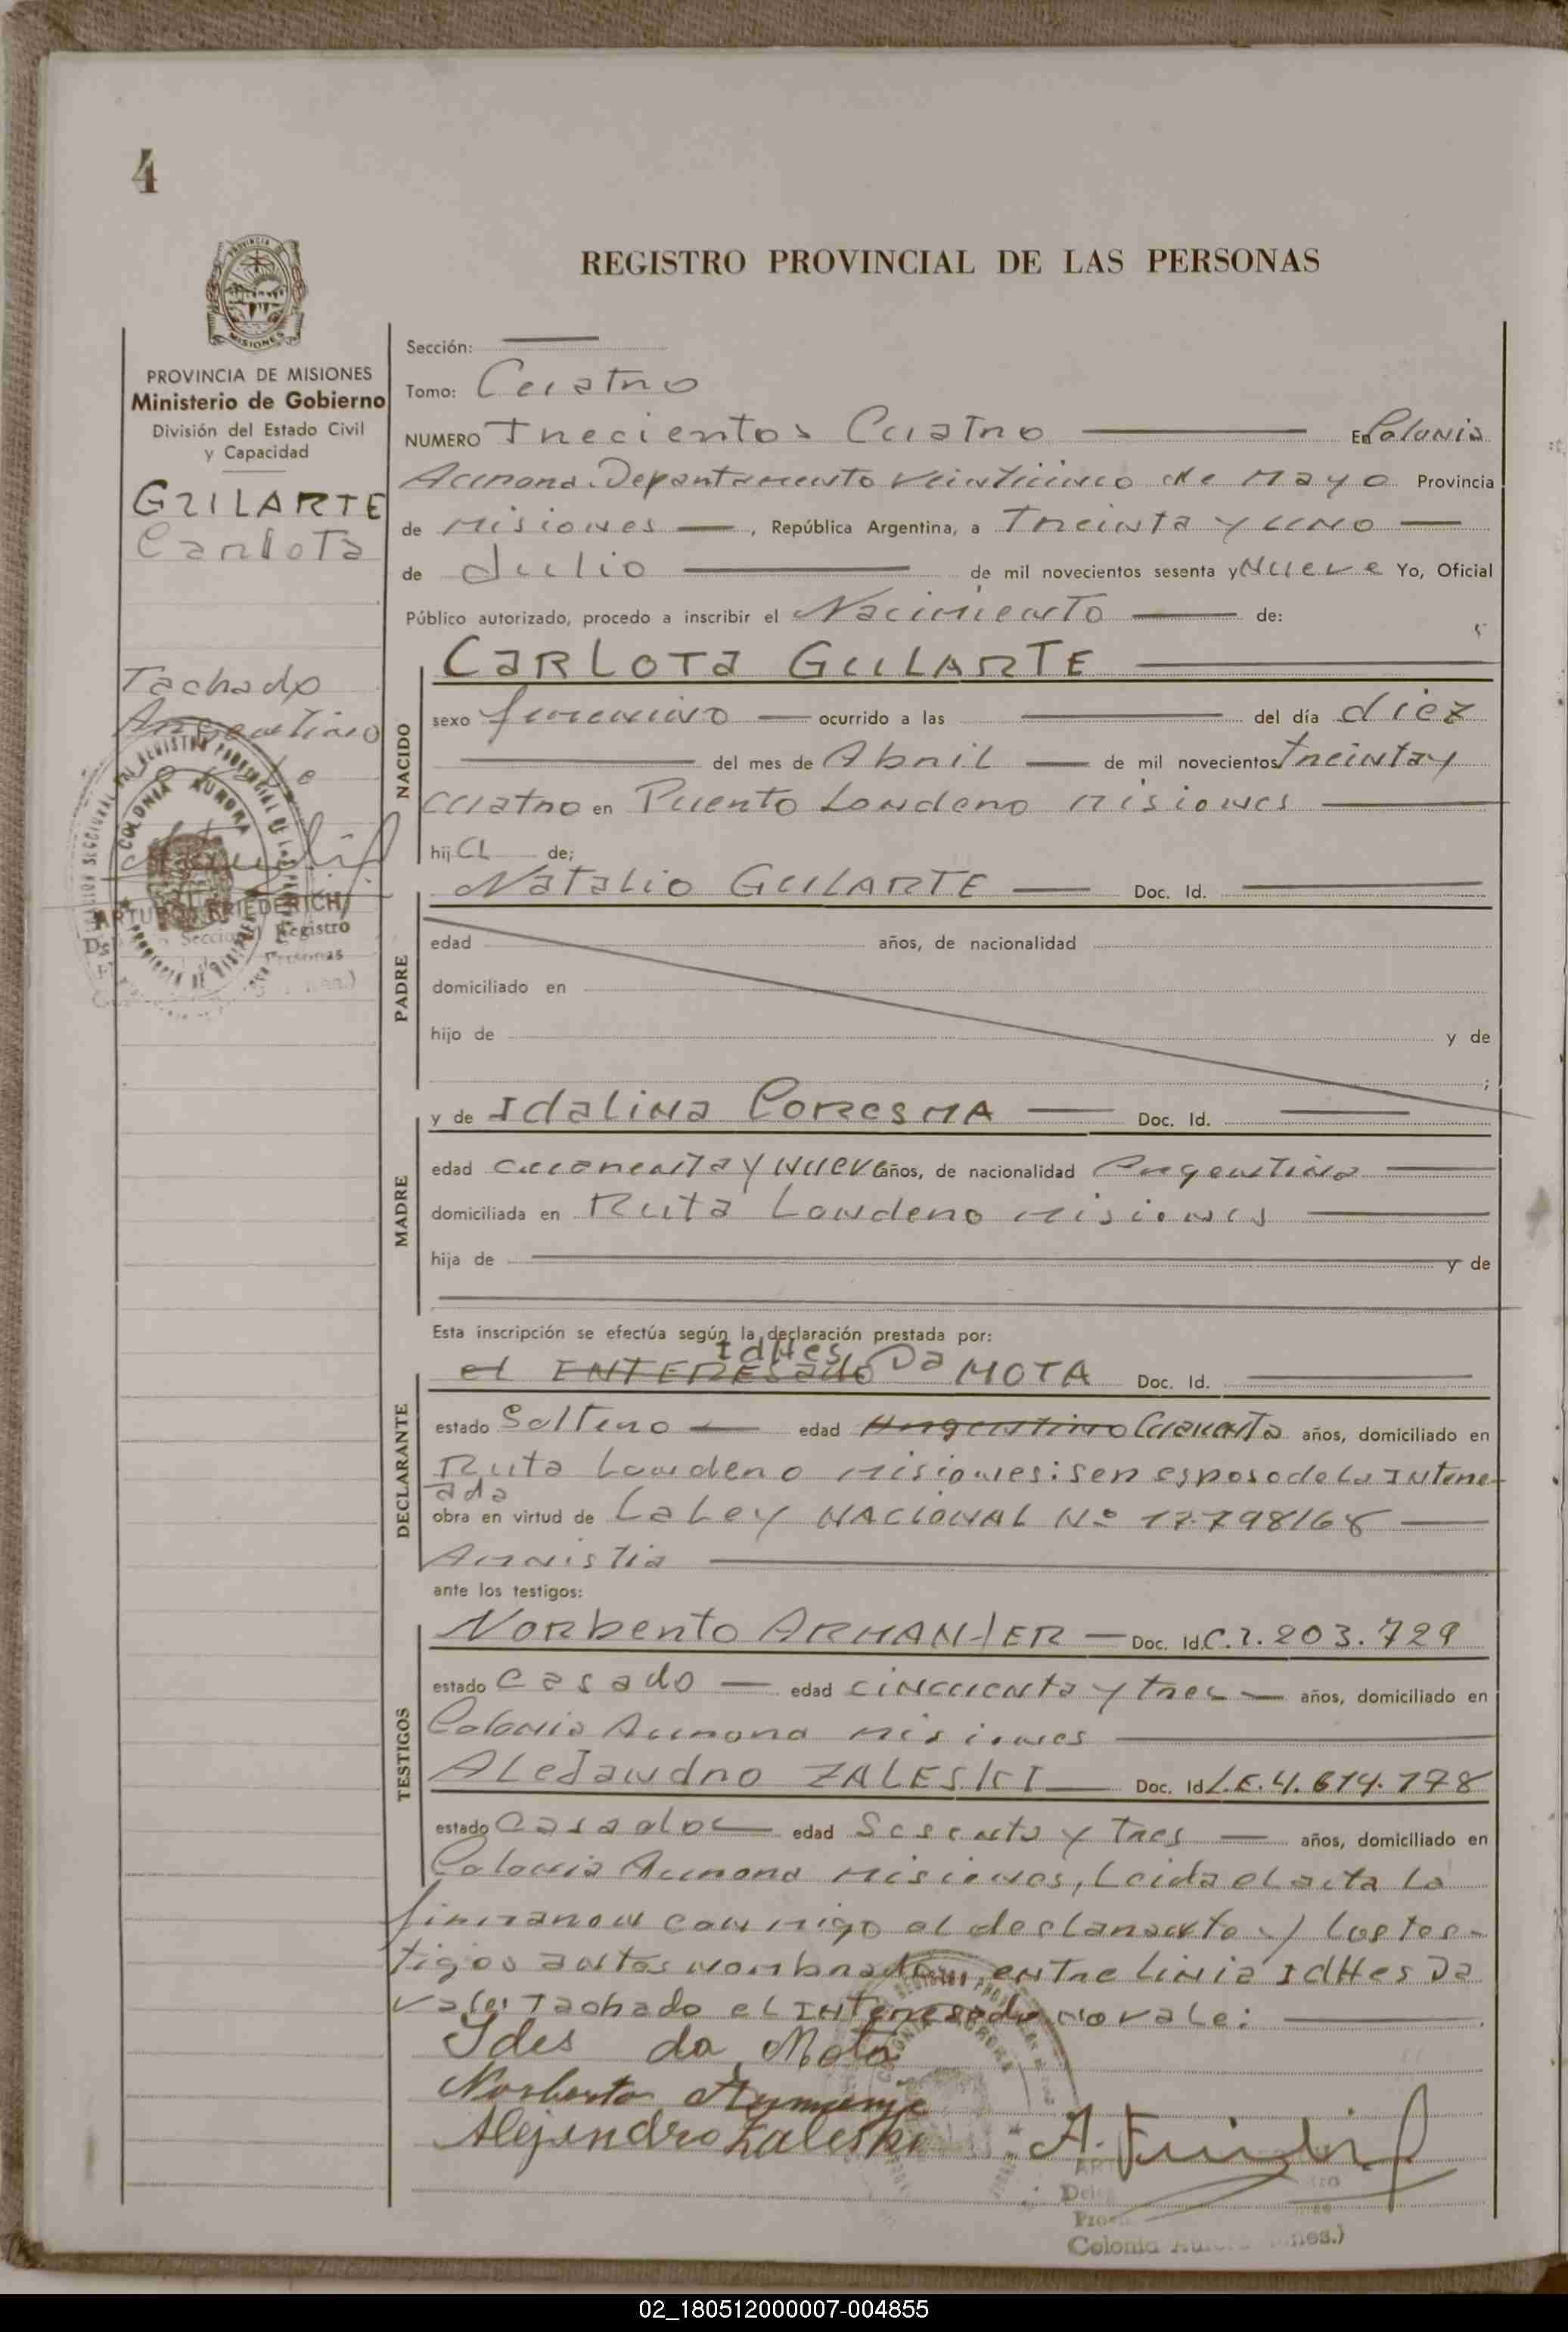 4
REGISTRO PROVINCIAL DE LAS PERSONAS
PROVINCIA DE MISIONES
Ministerio de Gobierno
División del Estado Civil
y Capacidad
GUILARTE
Carlota
Tachado
Argentino
ARTURO FRIEDERICH
Registro
COLONIA AURORA
Sección:
Tomo: Cuatro
NUMERO Trecientos Cuatro En Colonia
Aurora. Departamento Veinticinco de Mayo Provincia
de Misiones, República Argentina, a Treinta y uno
de Julio de mil novecientos sesenta y Nueve Yo, Oficial
Público autorizado, procedo a inscribir el Nacimiento de:
NACIDO
CARLOTA GULARTE
sexo femenino ocurrido a las del día diez
del mes de Abril de mil novecientos treinta y
cuatro en Puerto Londero Misiones
hij a de;
PADRE
Natalio GULARTE Doc. Id.
edad años, de nacionalidad
domiciliado en
hijo de y de
;
MADRE
y de Idalina CORRESMA Doc. Id.
edad cuarenta y nueve años, de nacionalidad Argentina
domiciliada en Ruta Londero Misiones
hija de y de
Esta inscripción se efectúa según la declaración prestada por:
DECLARANTE
el ENTERESado IdHes Da MOTA Doc. Id.
estado Soltero edad Argentino Cuarenta años, domiciliado en
Ruta Londero Misiones: ser esposo de la Intere-
ada
obra en virtud de La Ley NACIONAL Nº 17.798/68
Amnistia
ante los testigos:
TESTIGOS
Norberto ARMANJER Doc. Id. C.I. 203.729
estado Casado edad cincuenta y tres años, domiciliado en
Colonia Aurora Misiones
ALeJandro ZALESKI Doc. Id L.E. 4.614.178
estado Casado edad Sesenta y Tres años, domiciliado en
Colonia Aurora Misiones, Leida el acta La
firmaron conmigo el declarante y los tes-
tigos antes nombrados, entre linia IdHes Da
vale: Tachado el INteresado, no vale:
Ides da Mota
Norberto
Alejandro Zaleski
A.
Colonia
02_180512000007-004855